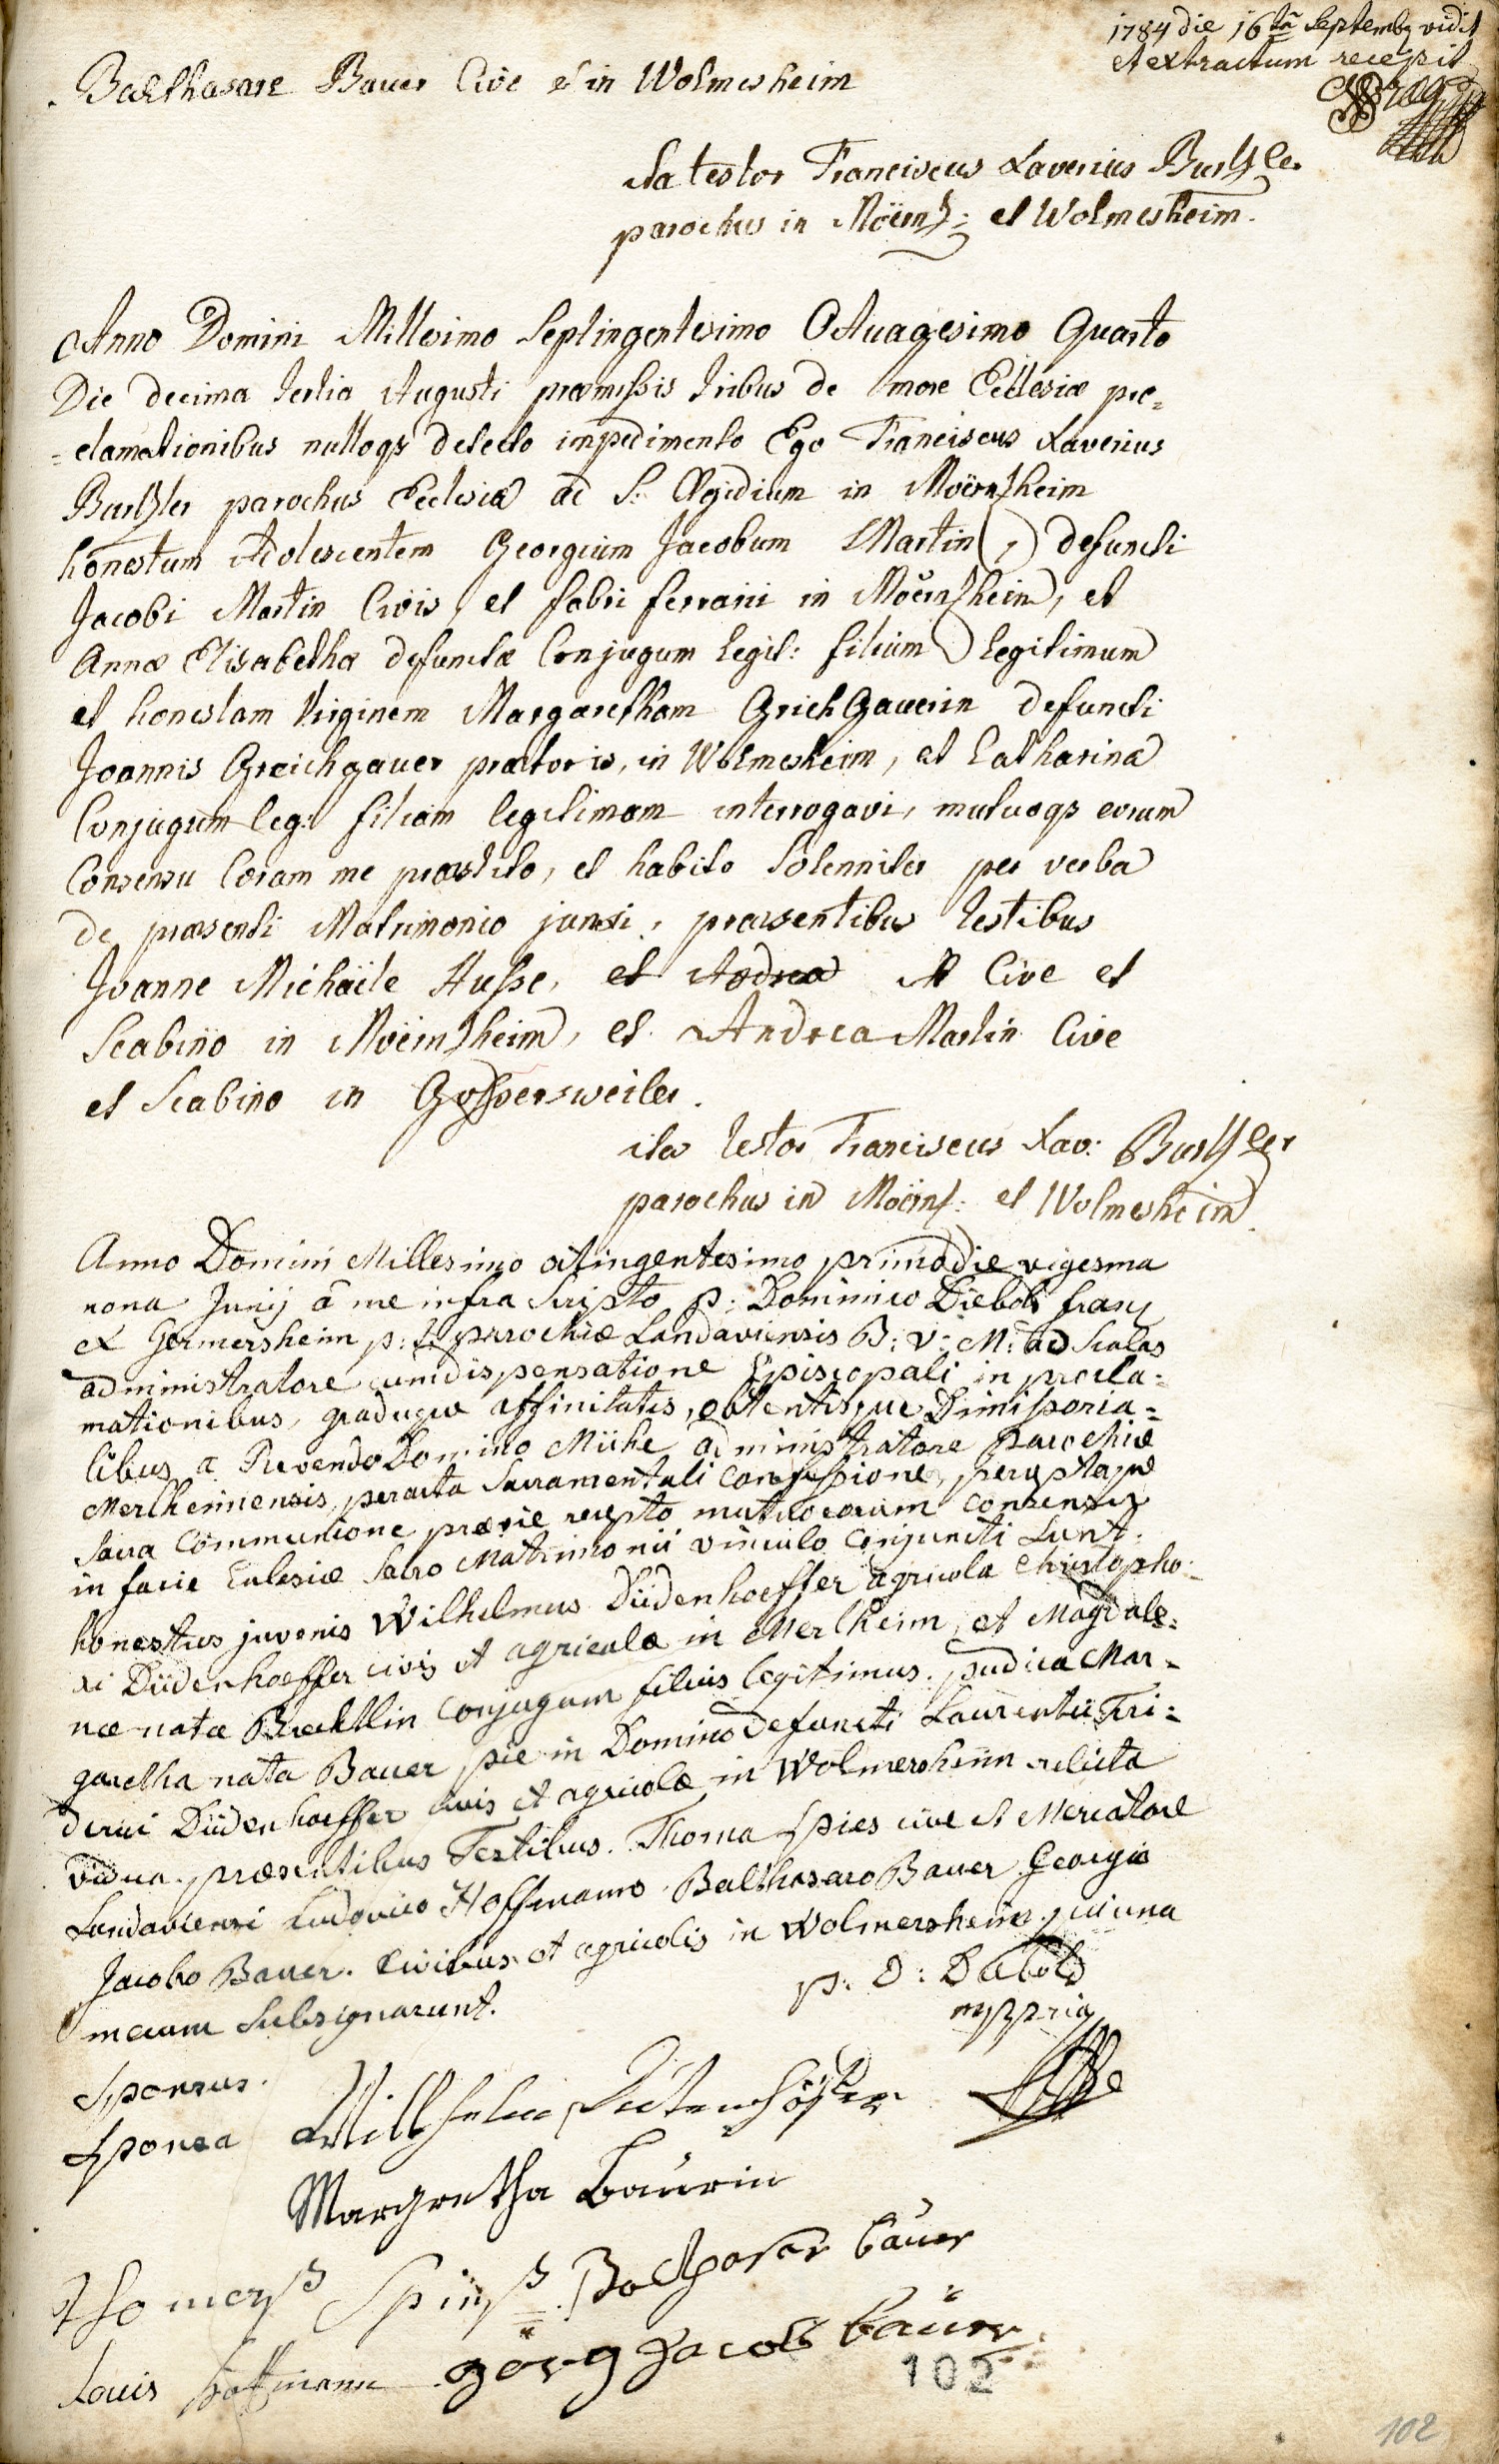 1784 die 16ta Septembr vidit
et extractum recepit
Balthasare Bauer Cive et in Wolmesheim
Ita testor Franciscus Xaverius Burtzler
parochus in Möernz: et Wolmesheim.
Anno Domini Millesimo Septingentesimo Octuagesimo Quarto
Die decima tertia Augusti præmissis tribus de more Ecclesiæ pro=
=clamationibus nulloqz detecto impedimento Ego Franciscus Xaverius
Burtzler parochus Ecclesiæ ad S: Ægidium in Moërnzheim
honestum Adolescentem Georgium Jacobum Martin (,) defuncti
Jacobi Martin Civis, et fabri ferrarii in Moërnzheim, et
Annæ Elisabethæ defunctæ Conjugum Legit: filium) legitimum
et honestam Virginem Margaretham GrichGauerin defuncti
Joannis Greichgauer prætoris, in Wolmesheim, et Catharinæ
Conjugum leg: filiam legitimam interrogavi, mutuoqz eorum
Consensu Coram me præstito, et habito Solenniter per verba
de præsenti Matrimonio junxi, præsentibus testibus
Joanne Michaële Husse, et Andrea M Cive et
Scabino in Moërnzheim, et Andrea Martin Cive
et Scabino in Gossersweiler.
ita testor Franciscus Xav: Burtzler
parochus in Moërnz: et Wolmesheim
Anno Domini Millesimo octingentesimo primo die vigesma
nona Junij â me infra Scripto p: Dominico Diebold franc
ex Germersheim p: t: parochiæ Landaviensis B: V: M: ad Scalas
administratore cum dispensatione Episcopali in procla=
mationibus, graduque affinitatis, obtentisque Dimissoria=
libus a Revendo Domino Mühe administratore parochiæ
Merlheimensis, peracta Sacramentali confessione, perceptaque
Sacra Communione prævie recepto mutuo eorum consensu
in facie Eclesiæ Sacro Matrimonii vinculo conjuncti Sunt.
honestus juvenis Wilhelmus Düdenhoeffer agricola Christopho=
ri Düdenhoeffer civis et agricolæ in Merlheim, et Magdale=
næ natæ Brechtlin Conjugum filius legitimus. pudica Mar=
garetha nata Bauer, pie in Domino defuncti Laurentii Fri=
derici Düdenhoeffer civis et agricolæ in Wolmersheim relicta
vidua. præsentibus Testibus. Thoma Spies cive et Mercatore
Landaviensi Ludovico Hoffmanno. Balthasaro Bauer Georgio
Jacobo Bauer. Civibus et agricolis in Wolmersheim, qui una
mecum Subsignarunt.
p: D: Diebold
mppria
Sponsus. Willhelm Dütenhöffer
Sponsa Margretha Baurin
Thomas Spieß Balthasar bauer
Louis Hoffmann gorg Jacob bauer
102
102